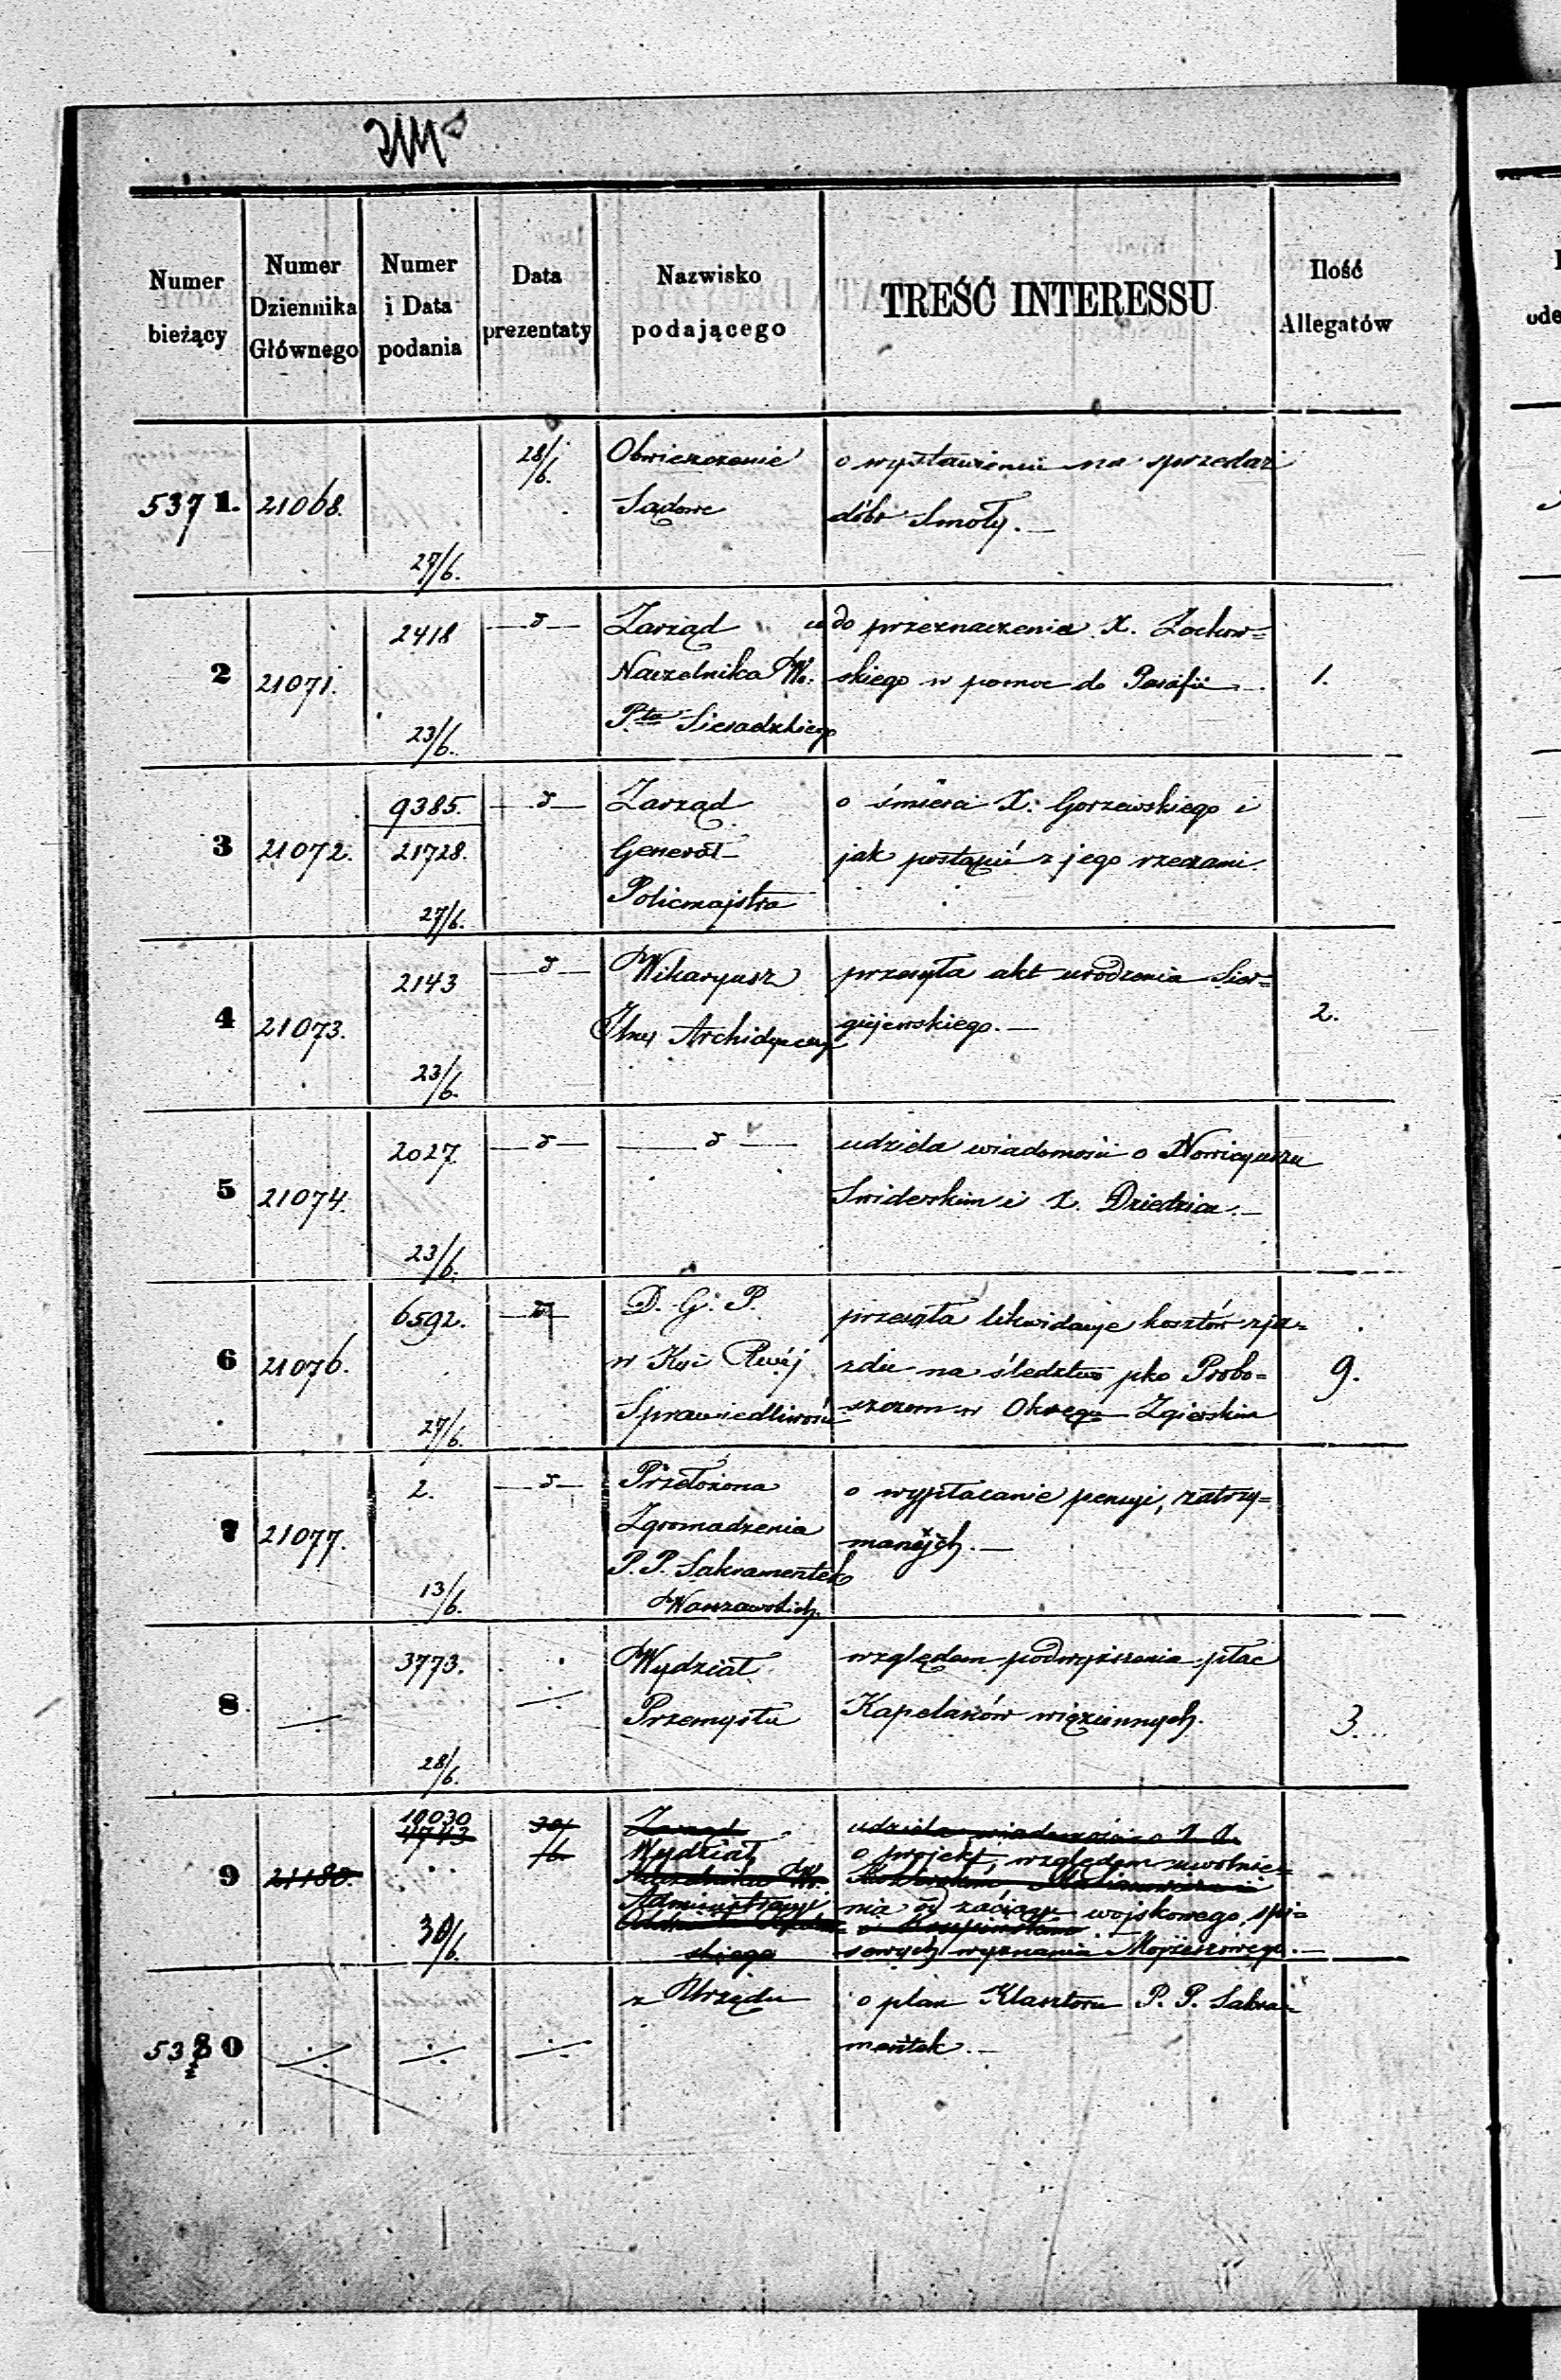 Numer bieżący
Numer Dziennika Głównego
Numer i Data podania
Data prezentaty
Nazwisko podającego
TREŚĆ INTERESSU
Ilość Allegatów
5371. 21068. 27/6. 28/6. Obwieszczenie o wystawieniu na sprzedaż
Sądowe dóbr Smoły. —
2 21071. 2418 23/6. — d — Zarząd do przeznaczenia X. Zochow=
Naczelnika W. skiego w pomoc do Parafii — 1.
Ptu Sieradzkiego
3 21072. 9385. 21728. 27/6. — d — Zarząd o śmierci X. Gorzewskiego i
Generał jak postąpić z jego rzeczami.
Policmajstra
4 21073. 2143 23/6. — d — Wikaryusz przesyła akt urodzenia Sier=
Jlny Archidyecezyi giejewskiego. — 2.
5 21074. 2027. 23/6. — d — — d — udziela wiadomości o Nowicyuszu
Swiderskim i X. Dziedzicu. —
6 21076. 6592. 27/6. — d — D. G. P. przesyła likwidacye kosztów zja=
w Kyi Rwéj zdu na śledztwo pko Probo=
Sprawiedliwości szczom w Okręgu Zgierskim 9.
7 21077. 2. 13/6. — d — Przełożona o wypłacanie pensyi, zatrzy=
Zgromadzenia manych. —
P. P. Sakramentek
Warszawskich.
8 3773. 28/6. Wydział względem podwyższenia płac
Przemysłu Kapelanów więziennych. 3.
9 21180. 10030 4743 30/6. 30/6 Zarząd udziela wiadomości o X. X.
Wydział o projekt, względem uwolnie=
Naczelnika W.
Administracyi nia od zaciągu wojskowego, spi=
skiego sowych wyznania Mojżeszowego. —
5380 z Urzędu o plan Klasztoru P. P. Sakra=
mentek. —